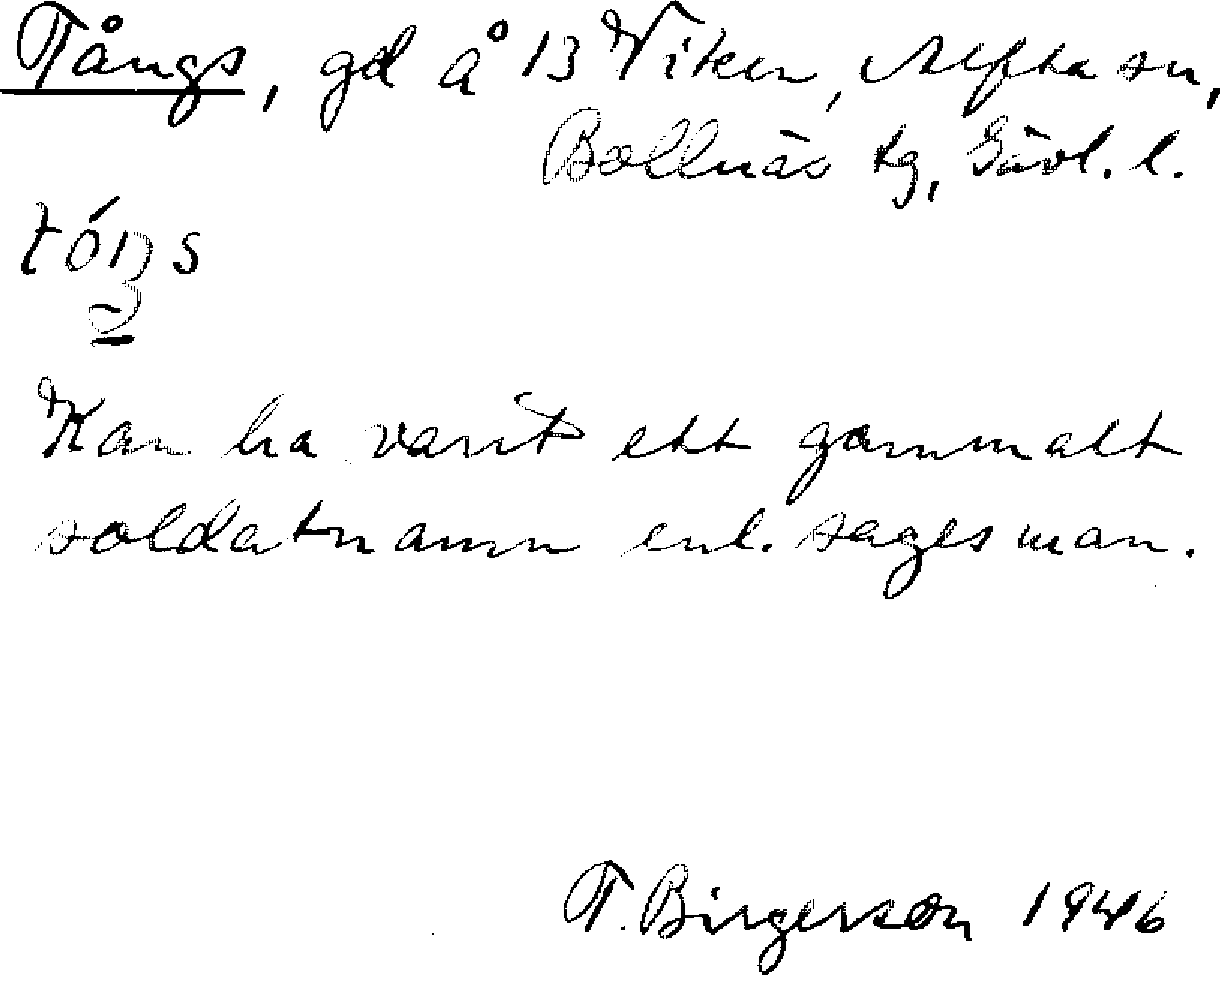 Tångs, gd å 13 Viken, Alfta sn,
Bollnäs tg, Gävl. l.
Kan ha varit ett gammalt
soldatnamn enl. sagesman.
T. Birgerson 1946